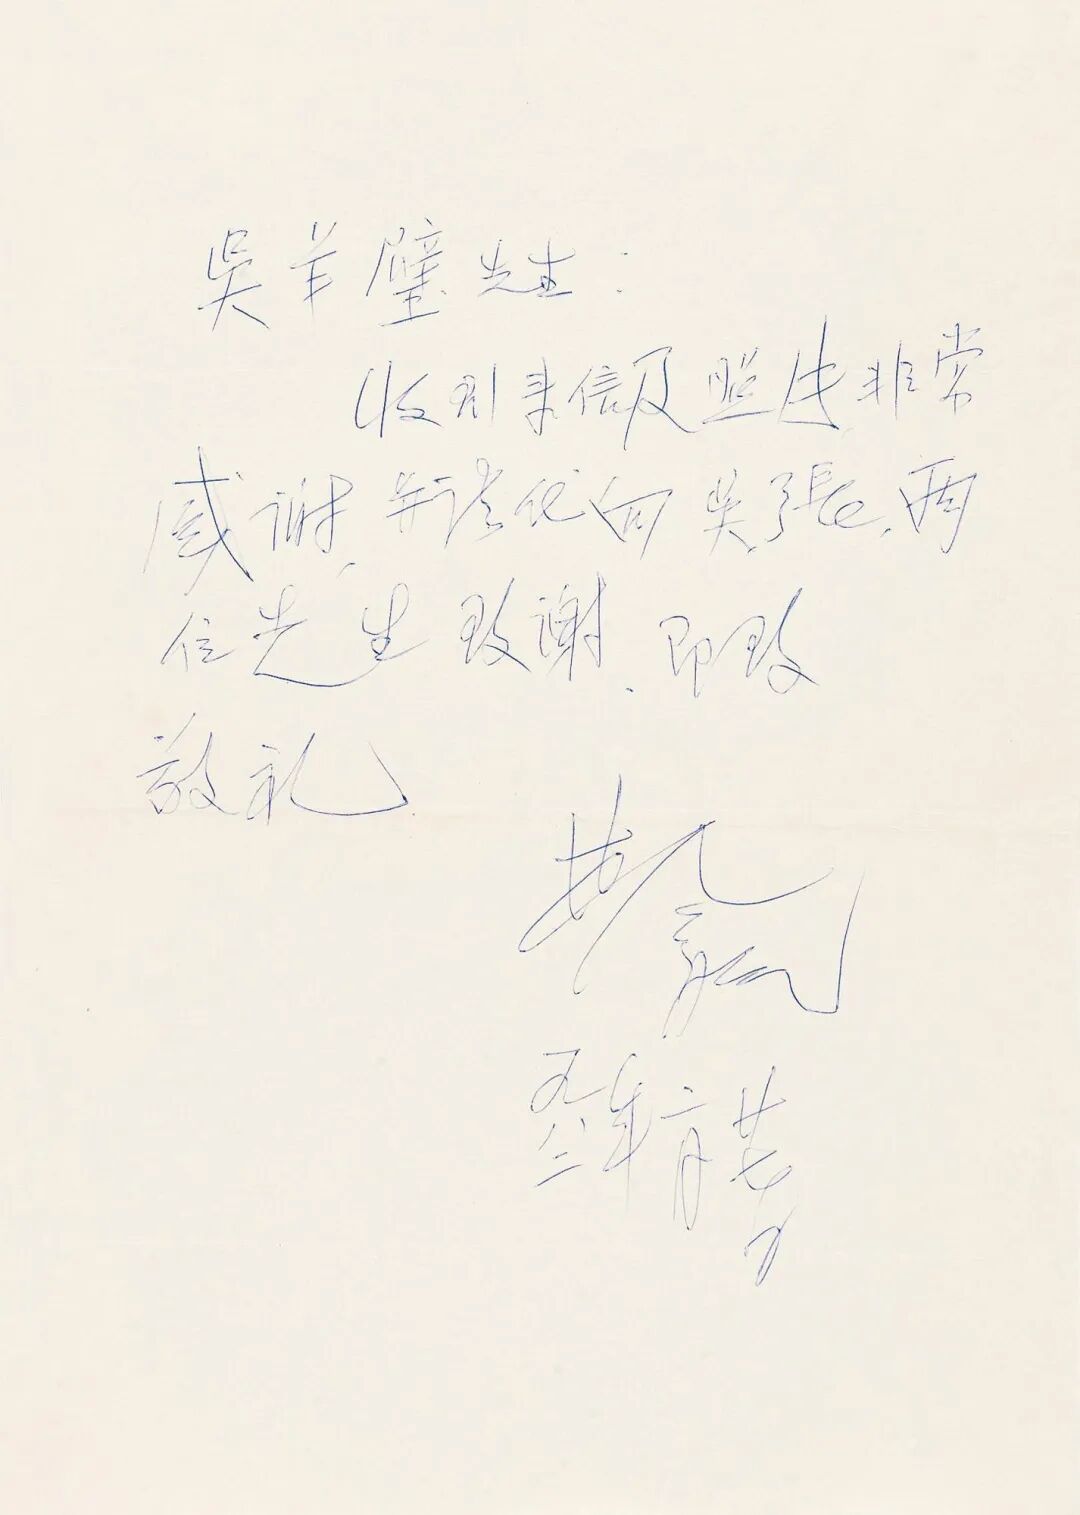 吴羊璧先生：
收到来信及照片，非常
感谢，并请代向吴、張、两
位先生致谢．即致
敬礼
一九八二年六月廿七日